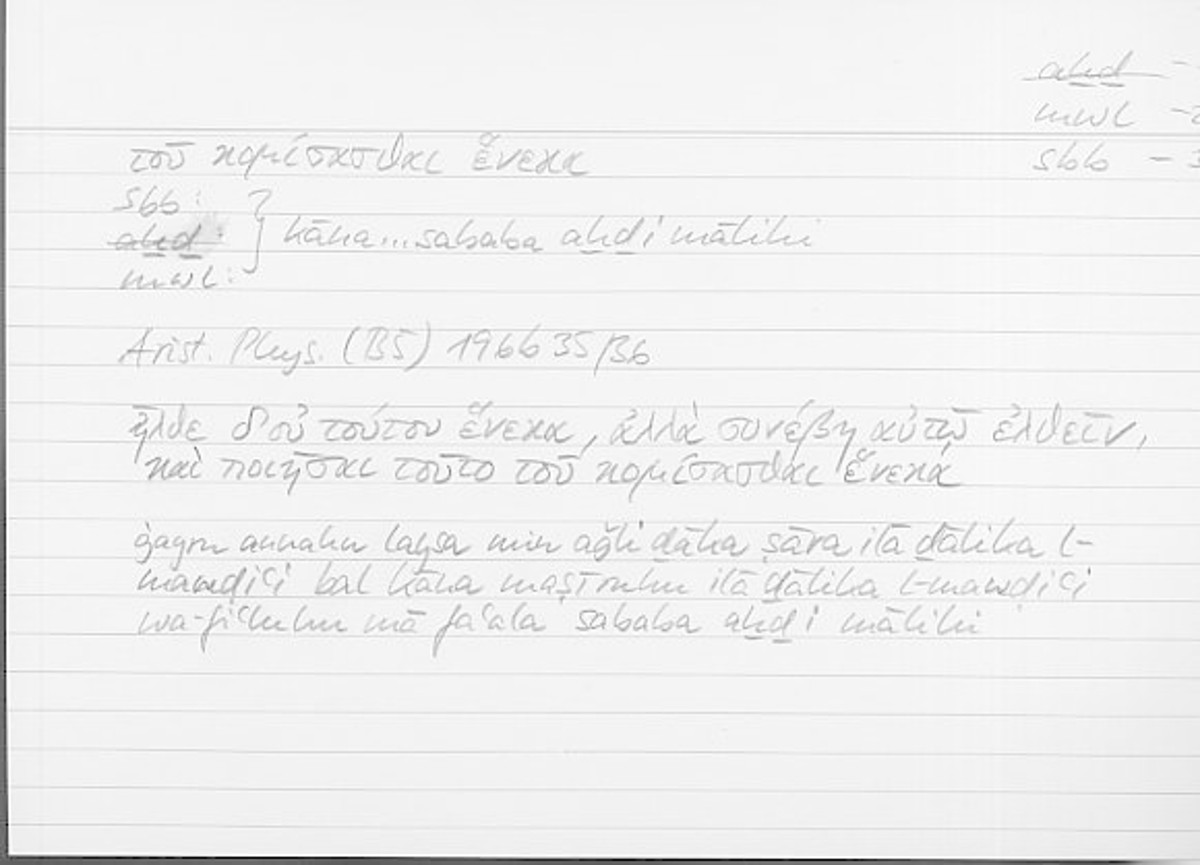 aḫḏ -
mwl -2
sbb - 3
τοῦ κομίσασθαι ἕνεκα
sbb:
aḫḏ: } kāna...sababa aḫḏi mālihi
mwl:
Arist. Phys. (B5) 196b35/36
ἦλθε δ'οὐ τούτου ἕνεκα, ἀλλὰ συνέβη αὐτῷ ἐλθεῖν,
καὶ ποιῆσαι τοῦτο τοῦ κομίσασθαι ἕνεκα
ġayru annahu laysa min aǧli ḏāka ṣāra ilā ḏālika l-
mawḍiʿi bal kāna maṣīruhu ilā ḏālika l-mawḍiʿi
wa-fiʿluhu mā faʿala sababa aḫḏi mālihi